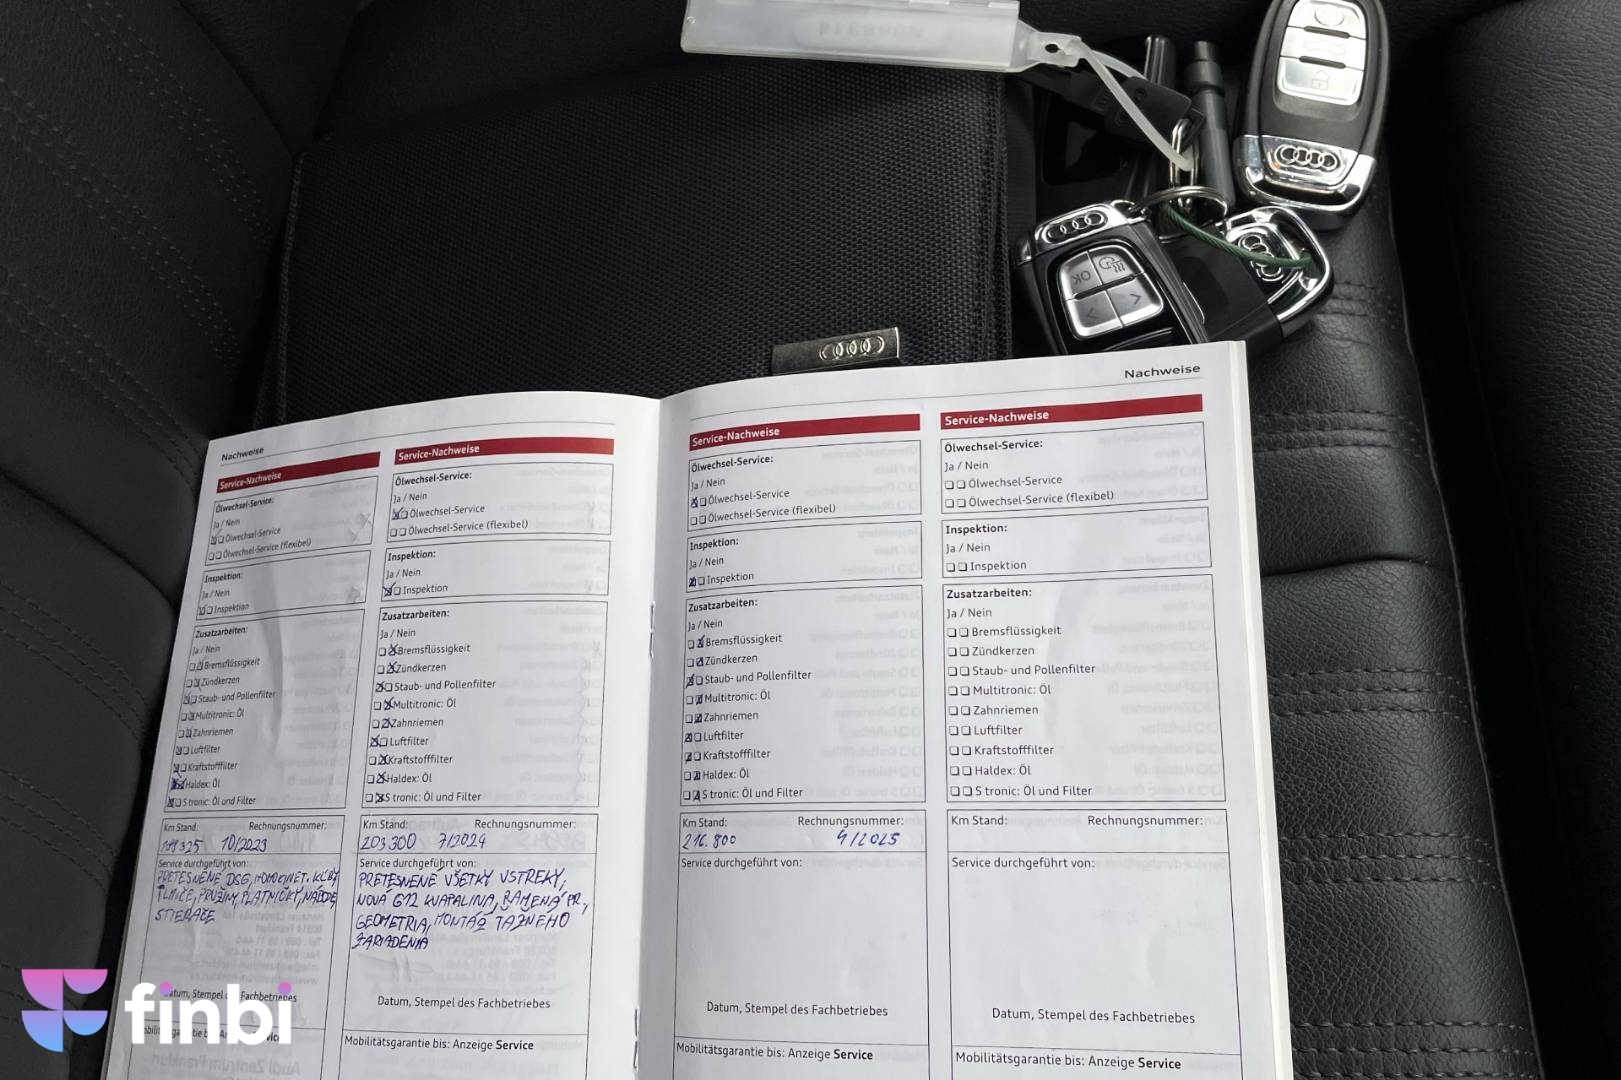 OK
Nachweise
Service-Nachweise
Ölwechsel-Service:
Ja / Nein
Ölwechsel-Service
Ölwechsel-Service (flexibel)
Inspektion:
Ja / Nein
Inspektion
Zusatzarbeiten:
Ja / Nein
Bremsflüssigkeit
Zündkerzen
Staub- und Pollenfilter
Multitronic: Öl
Zahnriemen
Luftfilter
Kraftstofffilter
Haldex: Öl
S tronic: Öl und Filter
Km Stand: Rechnungsnummer:
10/2023
Service durchgeführt von:
PRETESNENÉ DSG,
PRUŽINY, PLATNIČKY,
STIERAČE
Datum, Stempel des Fachbetriebes
Service-Nachweise
Ölwechsel-Service:
Ja / Nein
Ölwechsel-Service
Ölwechsel-Service (flexibel)
Inspektion:
Ja / Nein
Inspektion
Zusatzarbeiten:
Ja / Nein
Bremsflüssigkeit
Zündkerzen
Staub- und Pollenfilter
Multitronic: Öl
Zahnriemen
Luftfilter
Kraftstofffilter
Haldex: Öl
S tronic: Öl und Filter
Km Stand: Rechnungsnummer:
203.300 7/2024
Service durchgeführt von:
PRETESNENÉ VŠETKY VSTREKY,
NOVÁ G12 KVAPALINA, RAMENÁ PR.,
GEOMETRIA, MONTÁŽ ŤAŽNÉHO
ZARIADENIA
Datum, Stempel des Fachbetriebes
Mobilitätsgarantie bis: Anzeige Service
Nachweise
Service-Nachweise
Ölwechsel-Service:
Ja / Nein
Ölwechsel-Service
Ölwechsel-Service (flexibel)
Inspektion:
Ja / Nein
Inspektion
Zusatzarbeiten:
Ja / Nein
Bremsflüssigkeit
Zündkerzen
Staub- und Pollenfilter
Multitronic: Öl
Zahnriemen
Luftfilter
Kraftstofffilter
Haldex: Öl
S tronic: Öl und Filter
Km Stand: Rechnungsnummer:
216.800 4/2025
Service durchgeführt von:
Datum, Stempel des Fachbetriebes
Mobilitätsgarantie bis: Anzeige Service
Service-Nachweise
Ölwechsel-Service:
Ja / Nein
Ölwechsel-Service
Ölwechsel-Service (flexibel)
Inspektion:
Ja / Nein
Inspektion
Zusatzarbeiten:
Ja / Nein
Bremsflüssigkeit
Zündkerzen
Staub- und Pollenfilter
Multitronic: Öl
Zahnriemen
Luftfilter
Kraftstofffilter
Haldex: Öl
S tronic: Öl und Filter
Km Stand: Rechnungsnummer:
Service durchgeführt von:
Datum, Stempel des Fachbetriebes
Mobilitätsgarantie bis: Anzeige Service
finbi